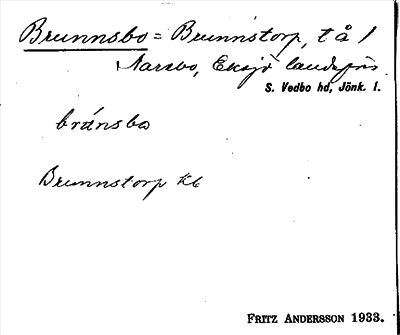 Brunnsbo = Brunnstorp, t å 1
Narsbo, Eksjö landsförs
S. Vedbo hd, Jönk. l.
bránsbo
Brunnstorp Kb
FRITZ ANDERSSON 1933.